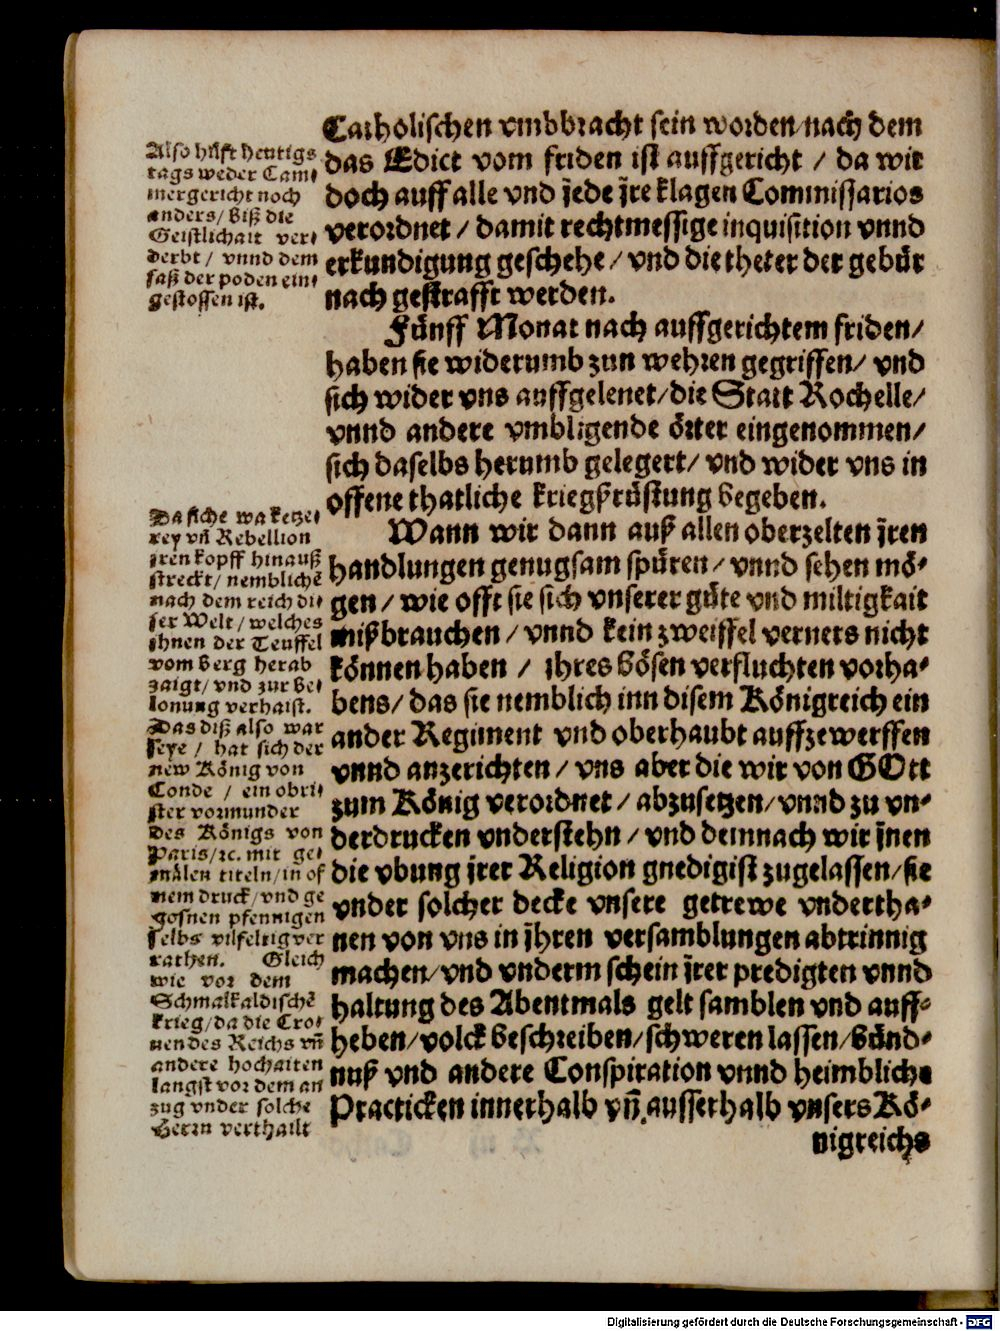 Catholischen vmbbracht sein worden/nach dem
das Edict vom friden ist auffgericht / da wir
doch auff alle vnd jede jre klagen Commissarios
verordnet / damit rechtmessige inquisition vnnd
erkundigung geschehe / vnd die theter der gebür
nach gestrafft werden.
Fünff Monat nach auffgerichtem friden/
haben sie widerumb zun wehren gegriffen/ vnd
sich wider vns auffgelenet/die Statt Rochelle/
vnnd andere vmbligende örter eingenommen/
sich daselbs herumb gelegert/ vnd wider vns in
offene thatliche kriegßrüstung begeben.
Wann wir dann auß allen oberzelten jren
handlungen genugsam spüren / vnnd sehen mö-
gen / wie offt sie sich vnserer güte vnd miltigkait
mißbrauchen / vnnd kein zweiffel verners nicht
können haben / ihres bösen verfluchten vorha-
bens/ das sie nemblich inn disem Königreich ein
ander Regiment vnd oberhaubt auffzewerffen
vnnd anzerichten / vns aber die wir von GOtt
zum König verordnet / abzusetzen/vnnd zu vn-
derdrucken vnderstehn / vnd demnach wir jnen
die vbung jrer Religion gnedigist zugelassen/sie
vnder solcher decke vnsere getrewe vndertha-
nen von vns in jhren versamblungen abtrinnig
machen/vnd vnderm schein jrer predigten vnnd
haltung des Abentmals gelt samblen vnd auff-
heben/volck beschreiben/schweren lassen/bünd-
nuß vnd andere Conspiration vnnd heimbliche
Practicken innerhalb vñ ausserhalb vnsers Kö-
nigreichs
Also hilft heutigs
tags weder Cam-
mergericht noch
anders/ biß die
Geistlichait ver-
derbt / vnnd dem
faß der poden ein-
gestossen ist.
Da sihe wa ketze-
rey vñ Rebellion
jren kopff hinauß
streckt/ nemblichē
nach dem reich di-
ser Welt / welches
ihnen der Teuffel
vom berg herab
zaigt/ vnd zur be-
lonung verhaist.
Das diß also war
seye / hat sich der
new König von
Conde / ein obri-
ster vormunder
des Königs von
Paris/ꝛc. mit ge-
mälen titeln/in of
nem druck/vnd ge
gosnen pfennigen
selbs vilfeltig ver
rathen. Gleich
wie vor dem
Schmalkaldischē
krieg/da die Cro-
nen des Reichs vñ
andere hochaiten
langst vor dem an
zug vnder solche
Herrn verthailt
Digitalisierung gefördert durch die Deutsche Forschungsgemeinschaft - DFG